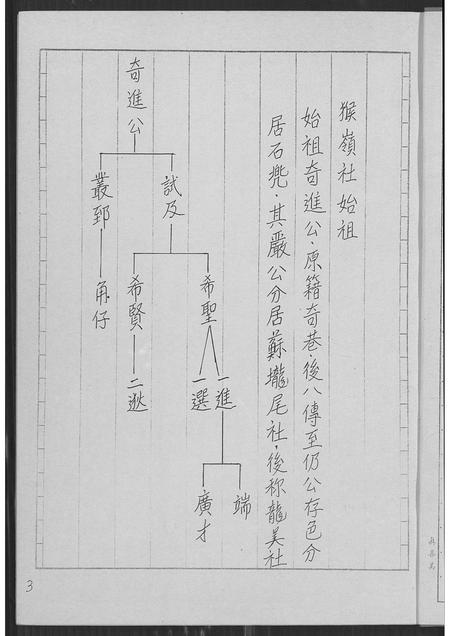 猴嶺社始祖
始祖奇進公．原籍奇巷．後八傳至仍公存色分
居石兜 其嚴公分居蘇壠尾社．後称龍美社
奇進公
試及
叢郅
希聖
希賢
角仔
一進
一選
二逖
端
廣才
3